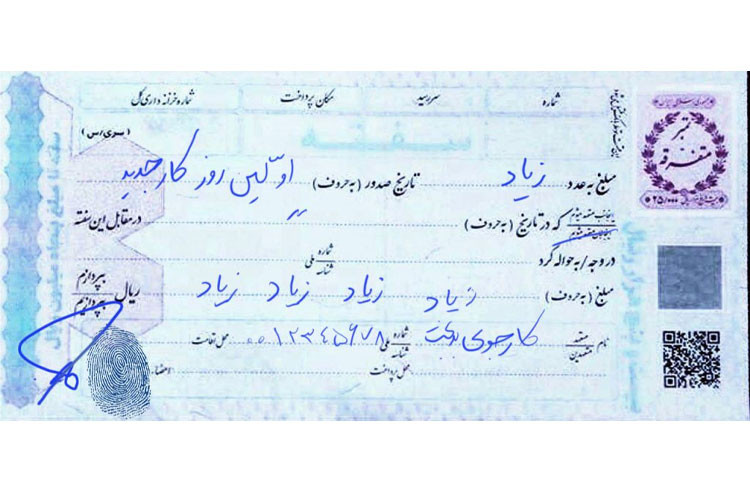 شماره سررسید مکان پرداخت شماره خزانه داری کل
سفته
(سری/س)
جمهوری اسلامی ایران
تمبر
متفرقه
۲۵/۰۰۰
مبلغ به عدد زیاد تاریخ صدور (به حروف) اوّلین روز کار جدید
که در تاریخ (به حروف) " در مقابل این سفته
در وجه/به حواله کرد شماره شناسه ملی
مبلغ (به حروف) زیاد زیاد زیاد زیاد ریال بپردازم بپردازیم
نام متعهد متعهدین کارجوی بدبخت شماره شناسه ملی ۰۰۱۲۳۴۵۶۷۸ محل اقامت
محل پرداخت امضاء